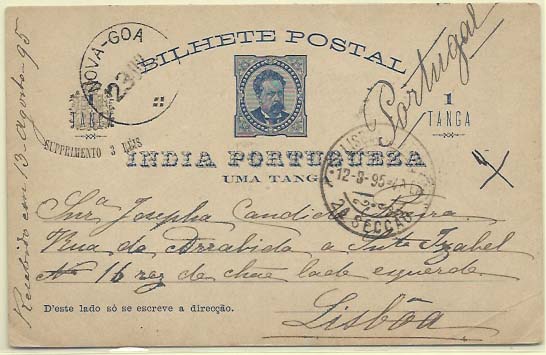 NOVA-GOA
23
BILHETE POSTAL
Portugal
1
TANGA
1
TANGA
SUPPRIMENTO 3 RÉIS
INDIA PORTUGUEZA
UMA TANGA
12-9-95
2ª SECÇÃO
Snrª Josepha Candida
Rua da Arrabida a Stª Izabel
Nº 16 rez de chae lado esquerdo
D'este lado só se escreve a direcção.
Lisbôa
Recebido em 13-Agosto-95